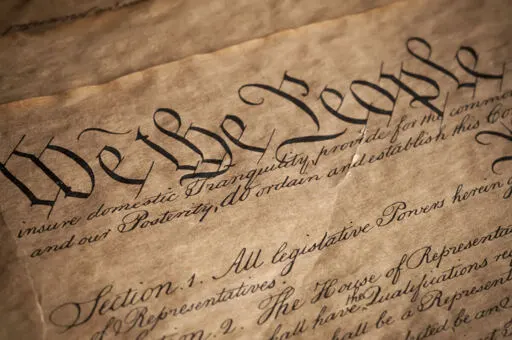 We the People
insure domestic Tranquility, provide for the common
and our Posterity, do ordain and establish this Co
Section. 1. All legislative Powers herein g
of Representatives.
Section. 2. The House of Representat
shall have the Qualifications re
shall be a Represent